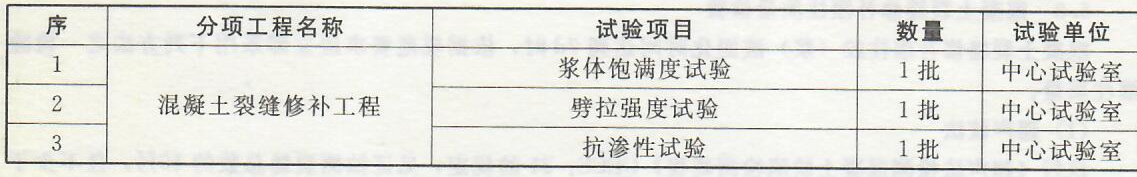 序 分项工程名称 试验项目 数量 试验单位
1 浆体饱满度试验 1批 中心试验室
2 混凝土裂缝修补工程 劈拉强度试验 1批 中心试验室
3 抗渗性试验 1批 中心试验室